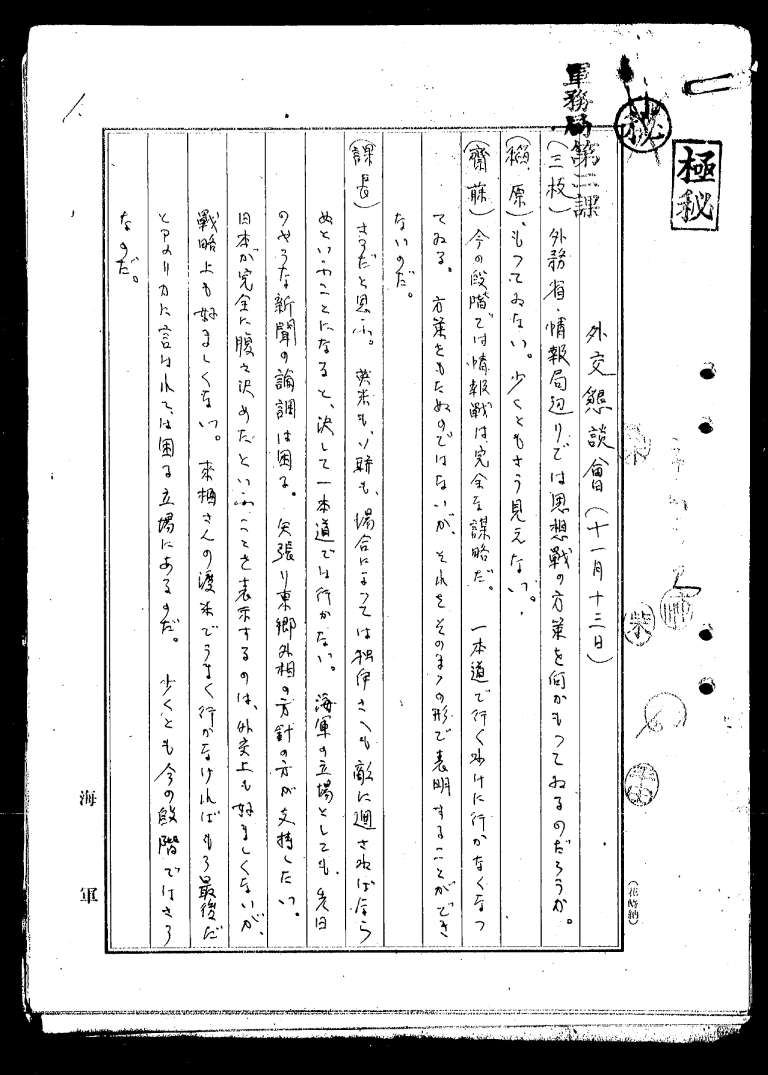 極秘
秘
軍務局第二課
外交懇談會(十一月十三日)
(三枝)外務省・情報局辺りでは思想戦の方策を何かもつてゐるのだらうか。
(稲原)もつてゐない。少くともさう見えない。
(齋藤)今の段階では情報戦は完全な謀略だ。一本道で行くわけに行かなくなつ
てゐる。方策をもたぬのではないが、それをそのまゝの形で表明することができ
ないのだ。
(課長)さうだと思ふ。英米も、ソ聯も、場合によつては独伊さへも敵に廻さねばなら
ぬといふことになると、決して一本道では行かない。海軍の立場としても、先日
のやうな新聞の論調は困る。矢張り東郷外相の方針の方が支持したい。
日本が完全に腹を決めたといふことを表示するのは、外交上も好ましくないが、
戦略上も好ましくない。来栖さんの渡米でうまく行かなければもう最後だ
とアメリカに言はれては困る立場にあるのだ。少くとも今の段階ではさう
なのだ。
海軍
柴